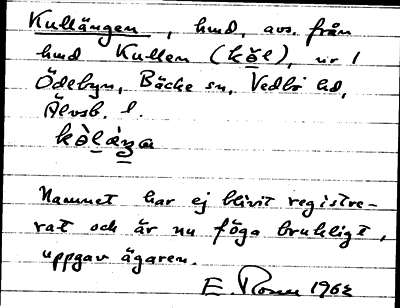 Kullängen, hmd, avs. från
hmd Kullen (kŏ̱l), nr 1
Ödebyn, Bäcke sn, Vedbo hd,
Älvsb. l.
kò̱láŋa
Namnet har ej blivit registre-
rat och är nu föga brukligt,
uppgav ägaren.
E. 1962